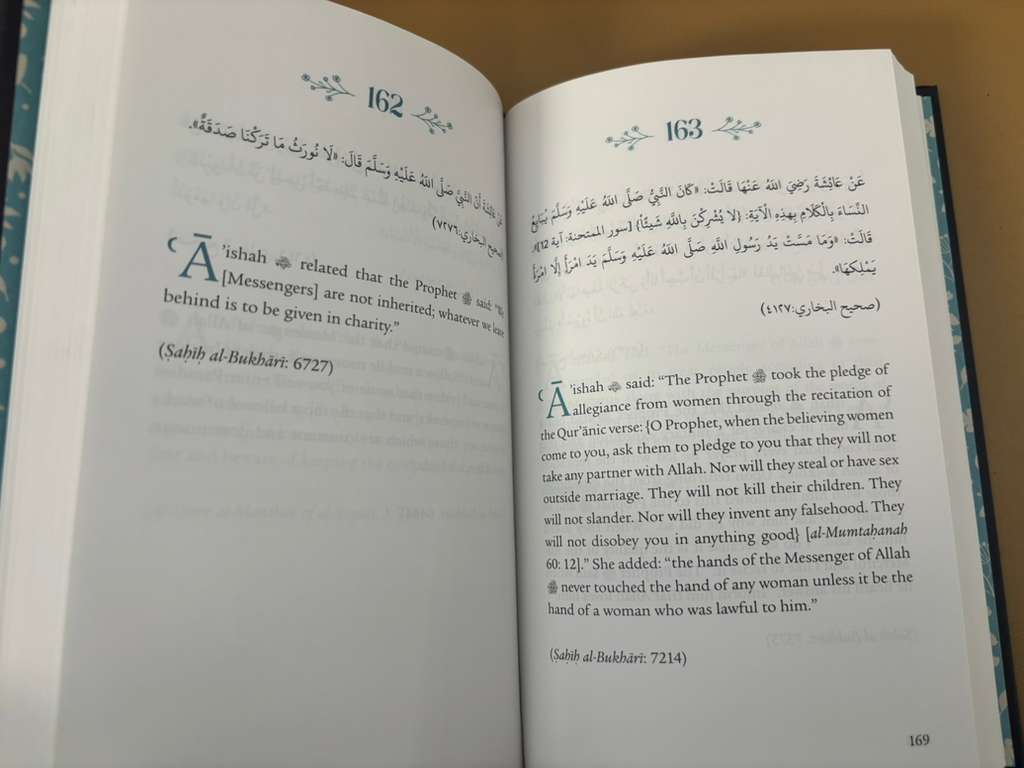 162
عَنْ عَائِشَةَ أَنَّ النَّبِيَّ صَلَّى اللهُ عَلَيْهِ وَسَلَّمَ قَالَ: «لَا نُورَثُ مَا تَرَكْنَا صَدَقَةٌ».
(صحيح البخاري:٧٢٧٦)
ʿĀ’ishah related that the Prophet ﷺ said: “We
[Messengers] are not inherited; whatever we leave
behind is to be given in charity.”
(Ṣaḥīḥ al-Bukhārī: 6727)
163
عَنْ عَائِشَةَ رَضِيَ اللهُ عَنْهَا قَالَتْ: «كَانَ النَّبِيُّ صَلَّى اللهُ عَلَيْهِ وَسَلَّمَ يُبَايِعُ
النِّسَاءَ بِالْكَلَامِ بِهذِهِ الْآيَةِ: {لَا يُشْرِكْنَ بِاللهِ شَيئًا} [سور الممتحنة: آية 12]».
قَالَتْ: «وَمَا مَسَّتْ يَدُ رَسُولِ اللهِ صَلَّى اللهُ عَلَيْهِ وَسَلَّمَ يَدَ امْرَأَةٍ إِلَّا امْرَأَةً
يَمْلِكُهَا».
(صحيح البخاري:٤١٢٧)
ʿĀ’ishah said: “The Prophet ﷺ took the pledge of
allegiance from women through the recitation of
the Qur’ānic verse: {O Prophet, when the believing women
come to you, ask them to pledge to you that they will not
take any partner with Allah. Nor will they steal or have sex
outside marriage. They will not kill their children. They
will not slander. Nor will they invent any falsehood. They
will not disobey you in anything good} [al-Mumtaḥanah
60: 12].” She added: “the hands of the Messenger of Allah
ﷺ never touched the hand of any woman unless it be the
hand of a woman who was lawful to him.”
(Ṣaḥīḥ al-Bukhārī: 7214)
169